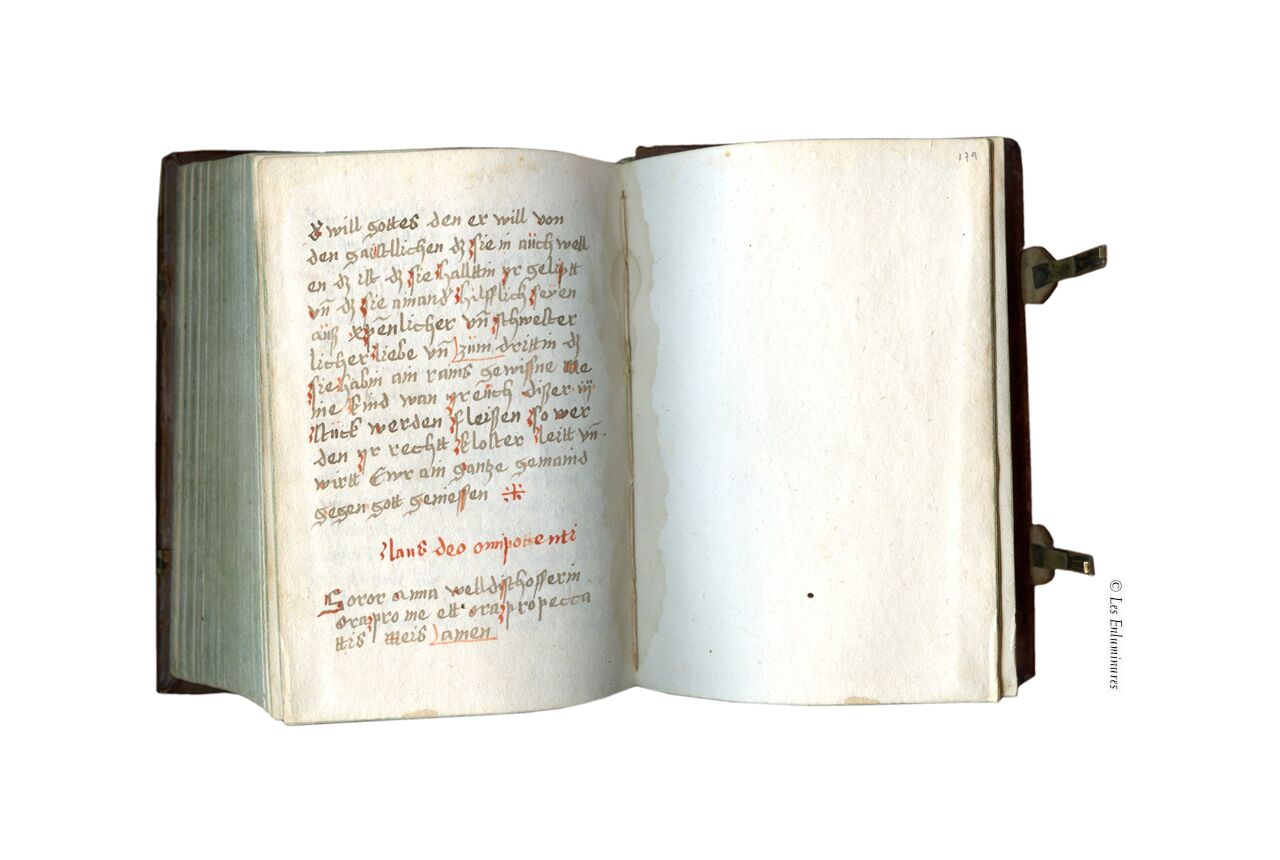 d will gottes den er will von
den gaistlichen dz sie in aüch well
en dz ist dz sie halttin yr geliptt
vn̄ dz sie amand hilfflich seÿen
aüß xp̄enlicher vn̄ schwester
licher liebe vn̄ züm drittin dz
sie habin ain rains gewissne
ne kind wan yr eüch dißer iij
stück werden fleißen so wer
den yr rechtt kloster leitt vn̄
wirtt Ewr ain gantze gemaind
gegen gott geniessen
laus deo omipottenti
Soror anna welldishofferin
ora pro me ett ora pro pecca
ttis meis amen
179
© Les Enluminures